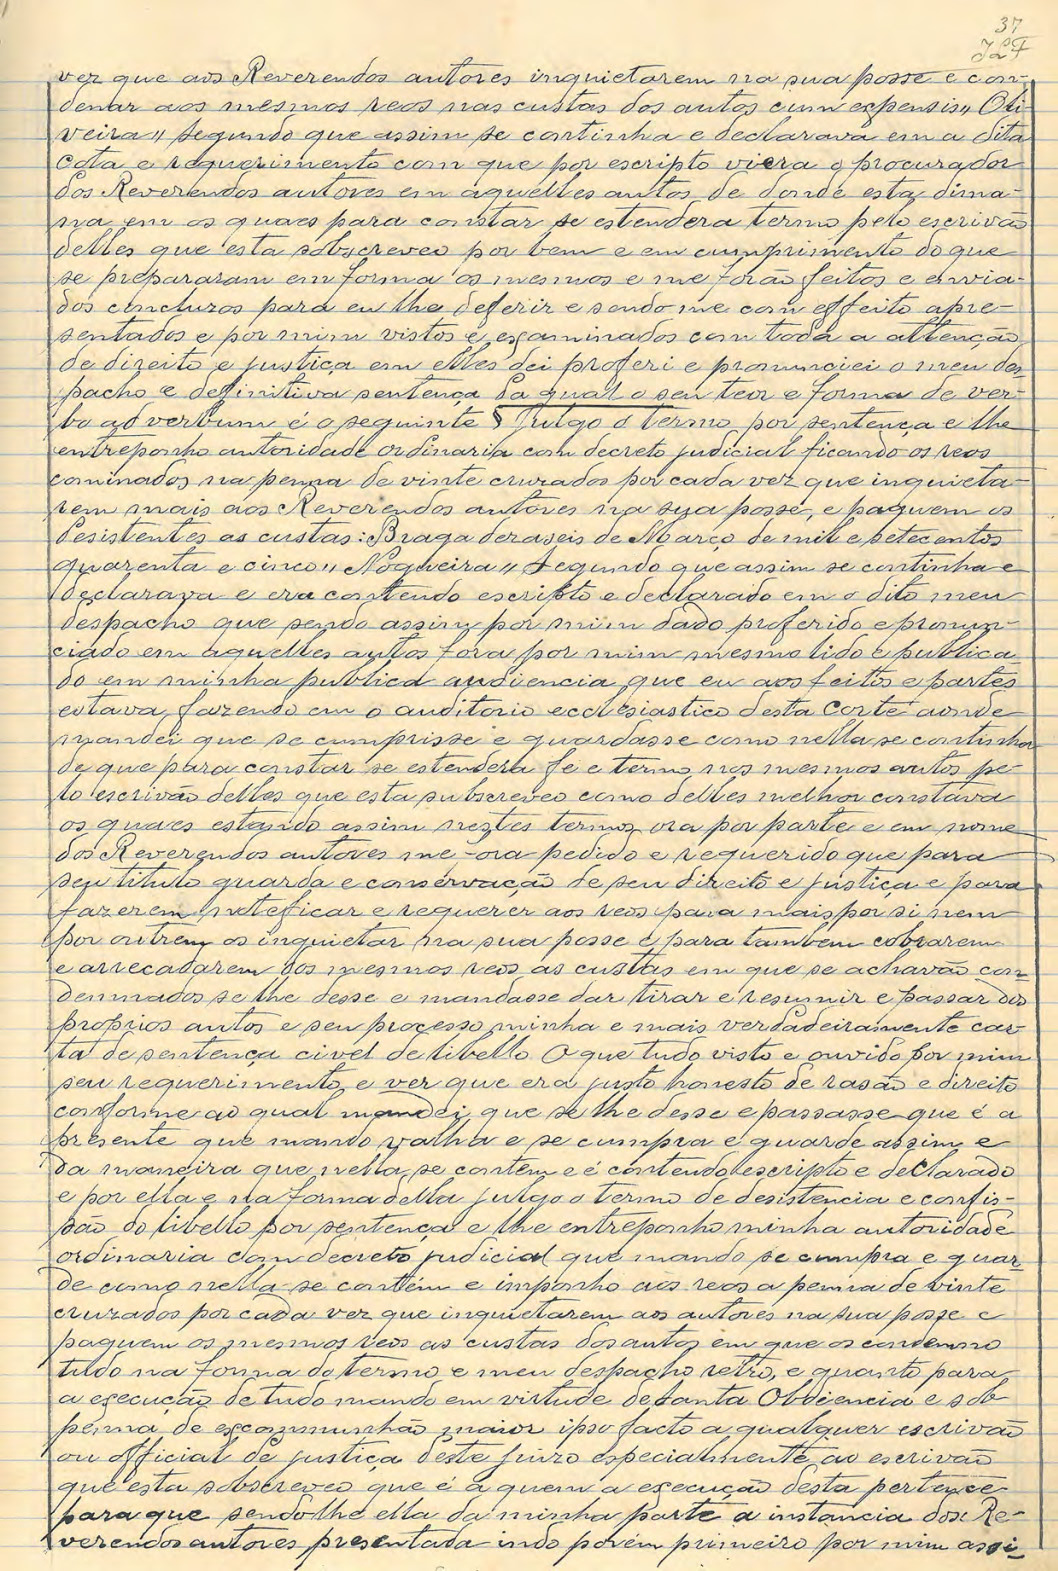 37
JLF
vez que aos Reverendos autores inquietarem na sua posse e con-
denar aos mesmos reos nas custas dos autos cum espensis,, Oli-
veira,, segundo que assim se continha e declarava em a dita
cota e requerimento com que por escripto viera o procurador
dos Reverendos autores em aquelles autos de donde esta dima-
na em os quaes para constar se estendera termo pelo escrivão
delles que esta sobscreveo por bem e em cumprimento do que
se prepararam em forma os mesmos e me forão feitos e envia-
dos concluzos para eu lhe deferir e sendo me com effeito apre-
sentados e por mim vistos e esaminados com toda a attenção
de direito e justiça em elles dei proferi e pronunciei o meu des
pacho e definitiva sentença da qual o seu teor e forma de ver-
bo ad verbum é o seguinte § Julgo o termo por sentença e lhe
entreponho autoridade ordinaria com decreto judicial ficando os reos
cominados na penna de vinte cruzados por cada vez que inquieta-
rem mais aos Reverendos autores na sua posse, e paguem os
desistentes as custas: Braga deraseis de Março de mil e setecentos
quarenta e cinco,, Nogueira,, Segundo que assim se continha e
declarava e era contendo escripto e declarado em o dito meu
despacho que sendo assim por mim dado proferido e pronun-
ciado em aquelles autos fora por mim mesmo lido e publica-
do em minha publica audiencia que eu aos feitos e partes
estava fazendo em o auditorio ecclesiastico desta Corte aonde
mandei que se cumprisse e guardasse como nella se continha
de que para constar se estendera fe e termo nos mesmos autos pe-
lo escrivão delles que esta subscreveo como delles melhor constava
os quaes estando assim nestes termos ora por parte e em nome
dos Reverendos autores me ora pedido e requerido que para
seu titulo guarda e conservação de seu direito e justiça e para
fazerem noteficar e requerer aos reos para mais por si nem
por outrem os inquietar na sua posse e para tambem cobrarem
e arrecadarem dos mesmos reos as custas em que se achavão con
denmados se lhe desse e mandasse dar tirar e resumir e passar dos
proprios autos e seu processo minha e mais verdadeiramente car
ta de sentença civel de libello O que tudo visto e ouvido por mim
seu requerimento e ver que era justo honesto de rasão e direito
conforme ao qual mandei que se lhe desse e passasse que é a
presente que mando valha e se cumpra e guarde assim e
da maneira que nella se contem e é contendo escripto e declarado
e por ella e na forma della julgo o termo de desistencia e confis-
são do libello por sentença e lhe entreponho minha autoridade
ordinaria com decreto judicial que mando se cumpra e guar
de como nella se contém e imponho aos reos a penna de vinte
cruzados por cada vez que inquietarem aos autores na sua posse e
paguem os mesmos reos as custas dos autos em que os condemno
tudo na forma do termo e meu despacho retro, e quanto para
a esecução de tudo mando em virtude de santa Obdiencia e sob
penna de escommunhão maior ipso facto a qualquer escrivão
ou official de justiça deste juizo especialmente ao escrivão
que esta sobscreveo que é a quem a esecução desta pertence
para que sendo lhe ella da minha parte a instancia dos Re-
verendos autores presentada indo porém primeiro por mim assi-